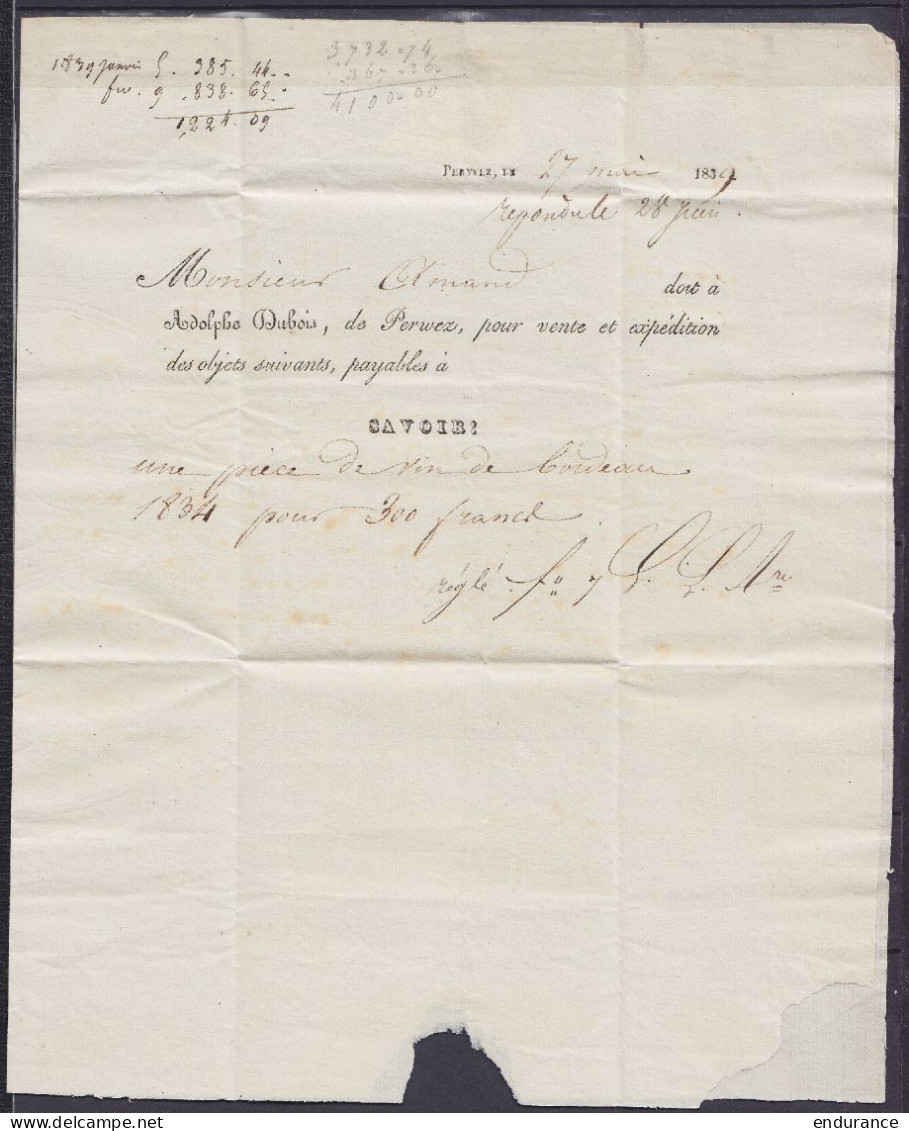 1839 janvier 5 . 385 . 44 . .
fev. 9 . 838 . 65 . .
1,224 . 09
3,732 . 74
367 . 26 .
4100 . 00
PERWEZ, LE 27 mai 1839
repondu le 28 juin .
Monsieur Amand doit à
Adolphe Dubois, de Perwez, pour vente et expédition
des objets suivants, payables à
SAVOIR:
une piece de vin de bordeau
1834 pour 300 francs .
réglé . fo 7
endurance